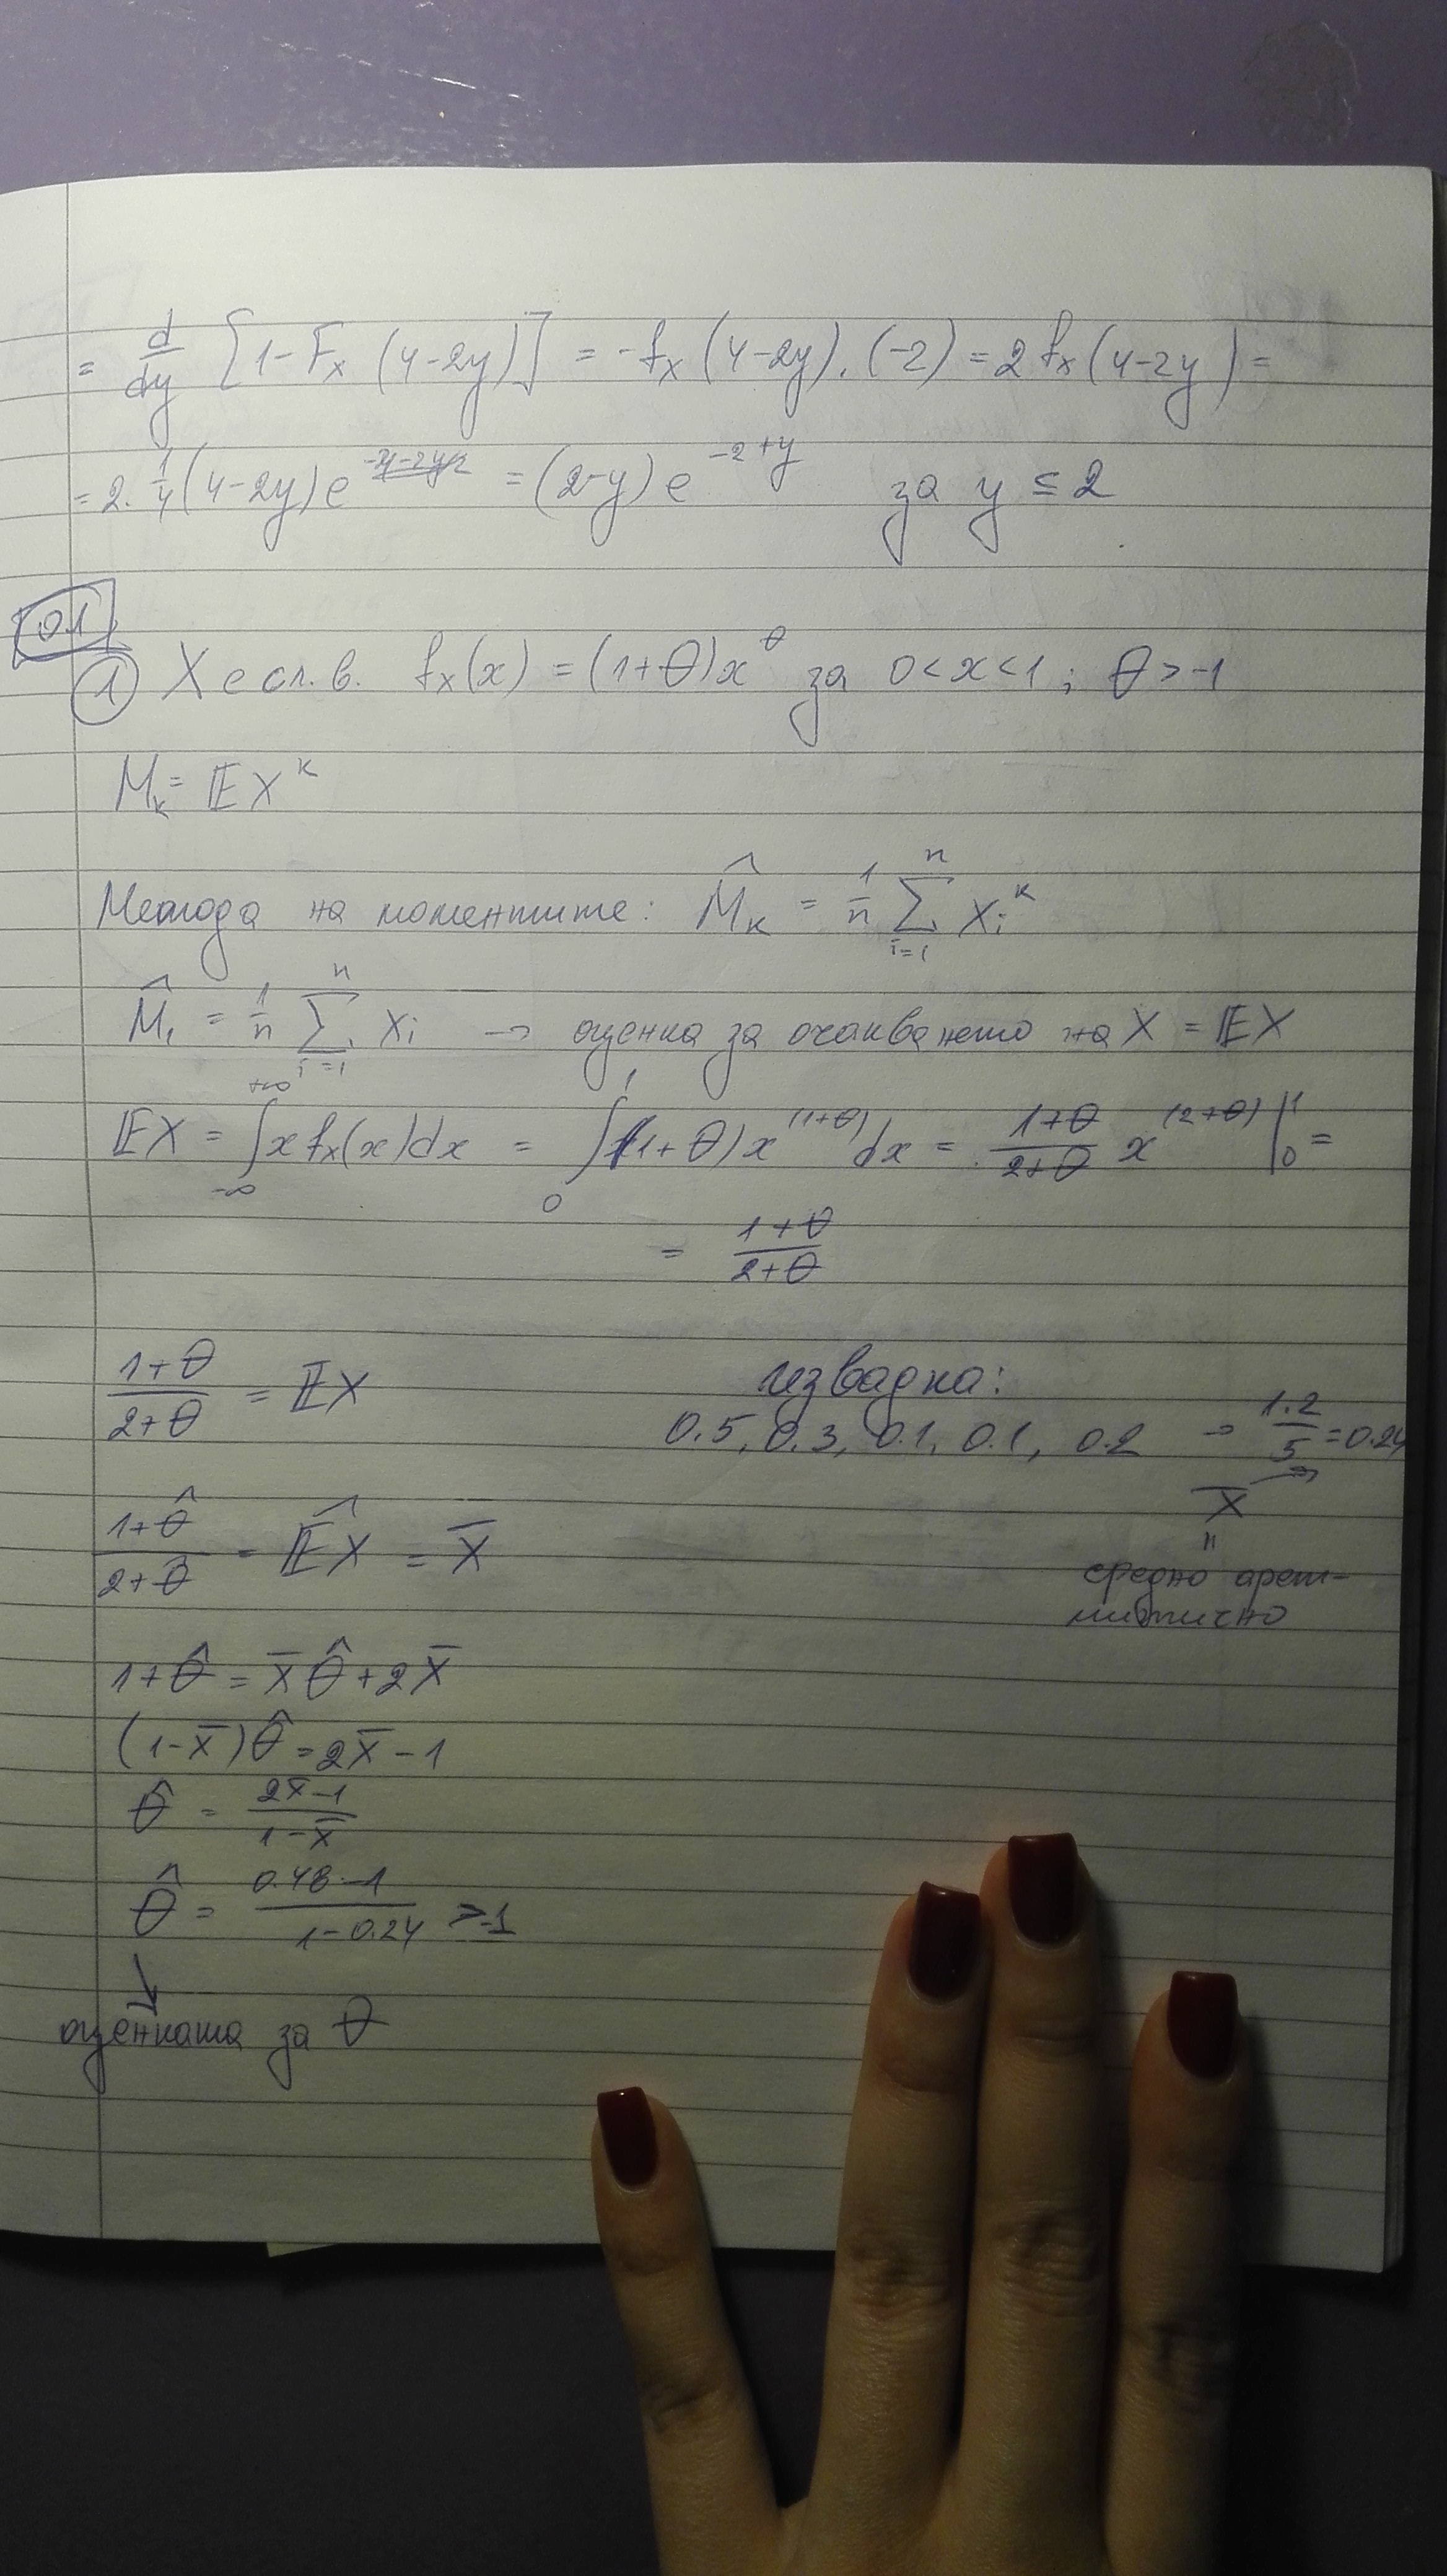 = d/dy [1-Fₓ (4-2y)] = -fₓ (4-2y).(-2) = 2 fₓ(4-2y) =
= 2. 1/4 (4-2y)e = (2-y) e^(-2+y) за y ≤ 2
01
① X е сл. в. fₓ(x) = (1+θ)x^θ за 0<x<1 ; θ>-1
Mₖ = 𝔼X^k
Метода на моментите: M̂ₖ = 1/n ∑_{i=1}^{n} Xᵢ^k
M̂₁ = 1/n ∑_{i=1}^{n} Xᵢ → оценка за очакването на X = 𝔼X
𝔼X = ∫_{-∞}^{+∞} x fₓ(x)dx = ∫_0^1 (1+θ)x^(1+θ) dx = (1+θ)/(2+θ) x^(2+θ) |_0^1 =
= (1+θ)/(2+θ)
(1+θ)/(2+θ) = 𝔼X
извадка:
0.5, 0.3, 0.1, 0.1, 0.2 → 1.2/5 = 0.24
X̄
"
средно арет-
митично
(1+θ̂)/(2+θ̂) = 𝔼̂X = X̄
1+θ̂ = X̄θ̂+2X̄
(1-X̄)θ̂ = 2X̄-1
θ̂ = (2X̄-1)/(1-X̄)
θ̂ = (0.48-1)/(1-0.24) >-1
↓
оценката за θ